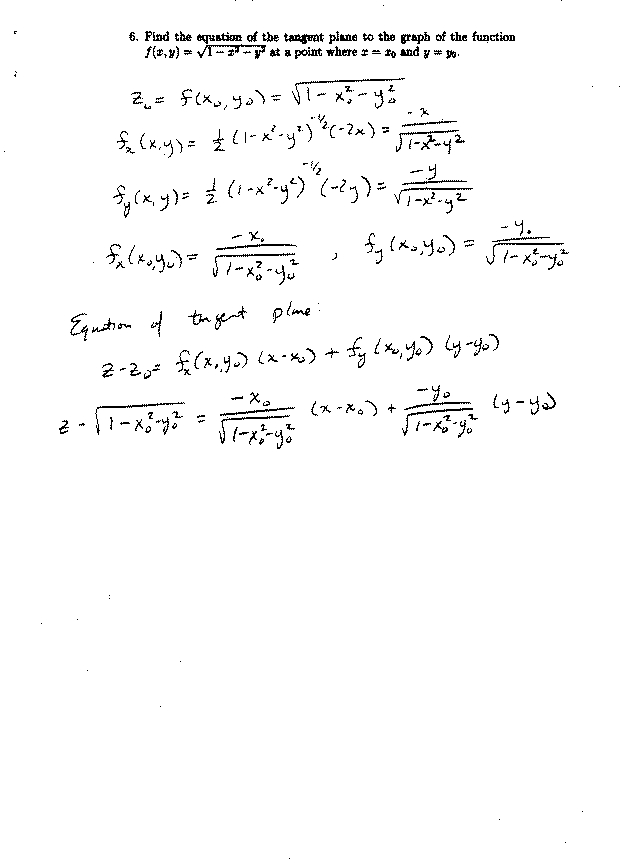 6. Find the equation of the tangent plane to the graph of the function
f(x, y) = √(1 − x² − y²) at a point where x = x₀ and y = y₀.
z₀ = f(x₀, y₀) = √(1 − x₀² − y₀²)
fₓ(x, y) = ½ (1 − x² − y²)^(−1/2) (−2x) = −x / √(1 − x² − y²)
f_y(x, y) = ½ (1 − x² − y²)^(−1/2) (−2y) = −y / √(1 − x² − y²)
fₓ(x₀, y₀) = −x₀ / √(1 − x₀² − y₀²) , f_y(x₀, y₀) = −y₀ / √(1 − x₀² − y₀²)
Equation of tangent plane:
z − z₀ = fₓ(x₀, y₀) (x − x₀) + f_y(x₀, y₀) (y − y₀)
z − √(1 − x₀² − y₀²) = −x₀ / √(1 − x₀² − y₀²) (x − x₀) + −y₀ / √(1 − x₀² − y₀²) (y − y₀)